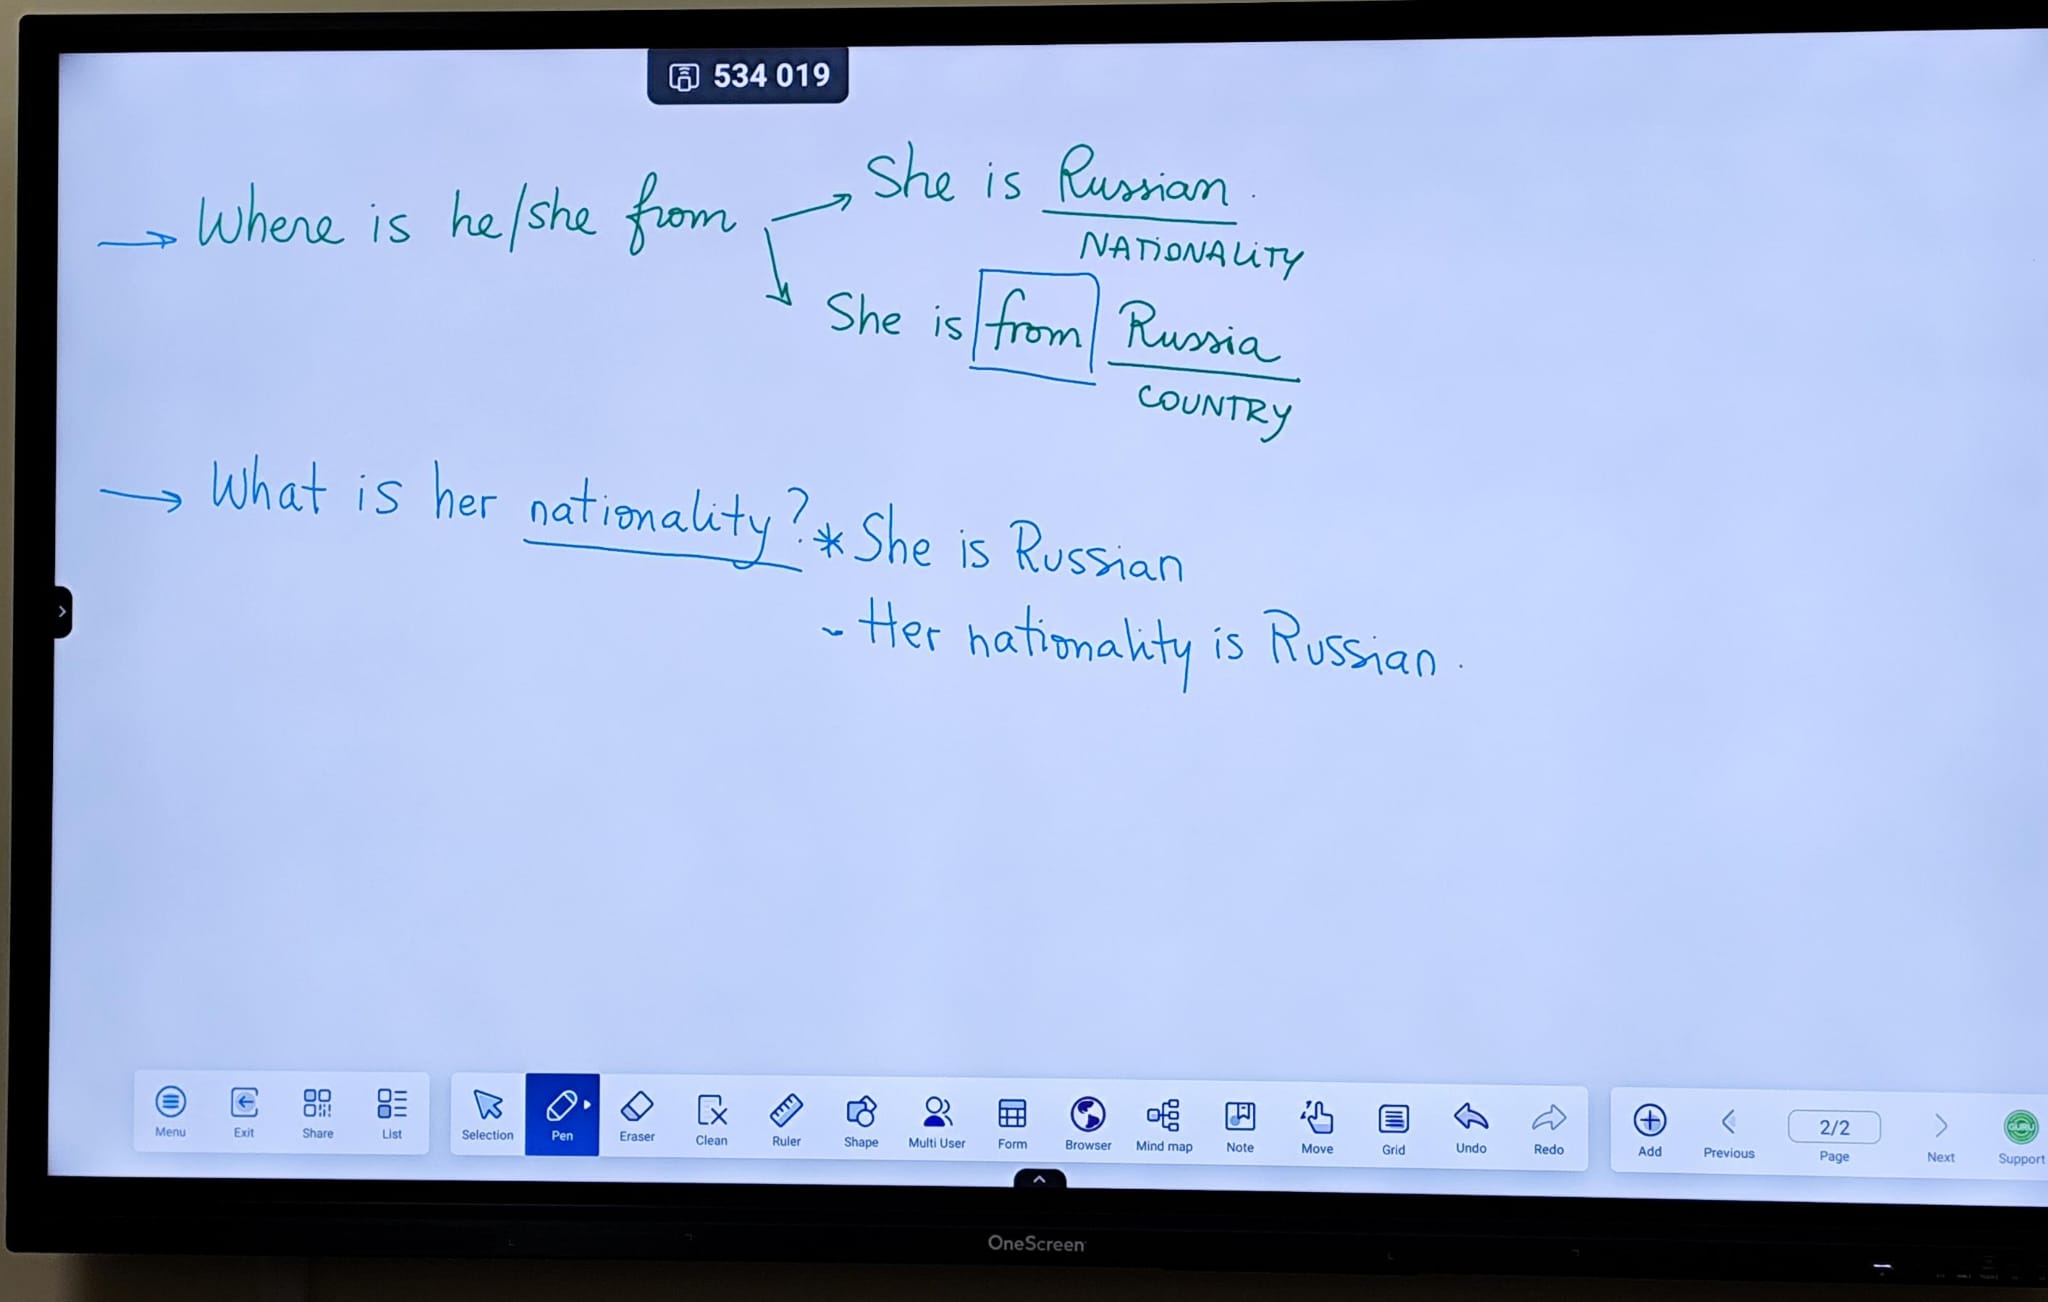 534 019
→ Where is he/she from
She is Russian.
NATIONALITY
She is from Russia
COUNTRY
→ What is her nationality? * She is Russian
- Her nationality is Russian.
Menu Exit Share List Selection Pen Eraser Clean Ruler Shape Multi User Form Browser Mind map Note Move Grid Undo Redo Add Previous 2/2 Page Next GURU Support
OneScreen